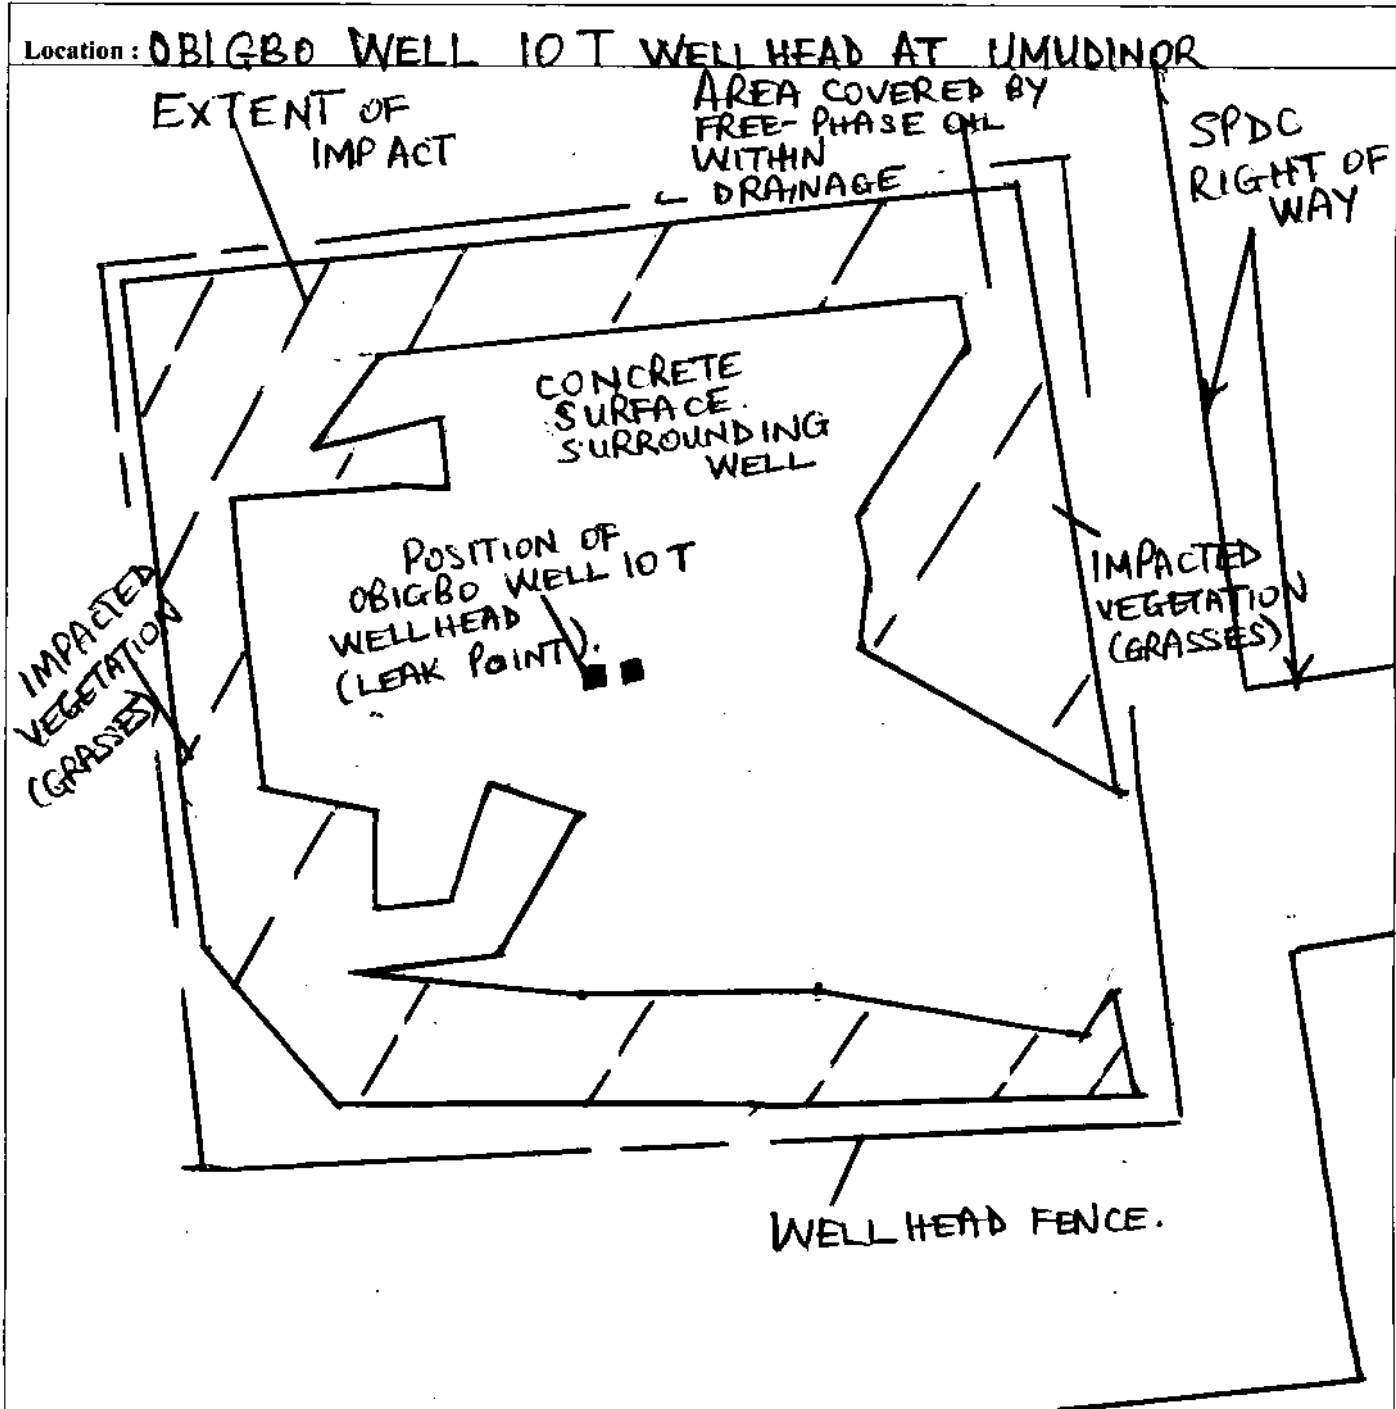 Location : OBIGBO WELL 10T WELLHEAD AT UMUDINOR
EXTENT OF
IMPACT
AREA COVERED BY
FREE-PHASE OIL
WITHIN
DRAINAGE
SPDC
RIGHT OF
WAY
CONCRETE
SURFACE
SURROUNDING
WELL
POSITION OF
OBIGBO WELL 10T
WELLHEAD
(LEAK POINT).
IMPACTED
VEGETATION
(GRASSES)
IMPACTED
VEGETATION
(GRASSES)
WELLHEAD FENCE.